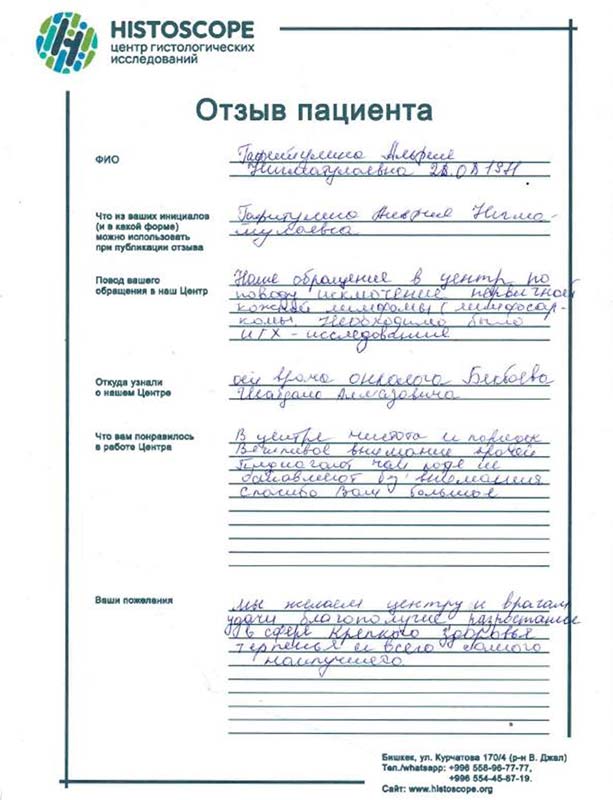 HISTOSCOPE
центр гистологических
исследований
Отзыв пациента
ФИО
Гафитулина
Нигматулаевна 28.08 1971
Что из ваших инициалов
(и в какой форме)
можно использовать
при публикации отзыва
Гафитулина Нигма-
тулаевна
Повод вашего
обращения в наш Центр
Наше обращение в центр по
поводу исключение первичной
кожной лимфомы (лимфосар-
комы. Необходимо было
ИГХ - исследование
Откуда узнали
о нашем Центре
врача онколога
Алмазовича
Что вам понравилось
в работе Центра
В центре чистота и порядок
Вежливое внимание врачей
Предлагают чай
без внимания
спасибо Вам большое
Ваши пожелания
мы желаем центру и врачам
удачи благополучие, разростание
в сфере Крепкого Здоровья
терпенья и всего самого
наилучшего
Бишкек, ул. Курчатова 170/4 (р-н В. Джал)
Тел./whatsapp: +996 558-96-77-77,
+996 554-45-87-19.
Сайт: www.histoscope.org